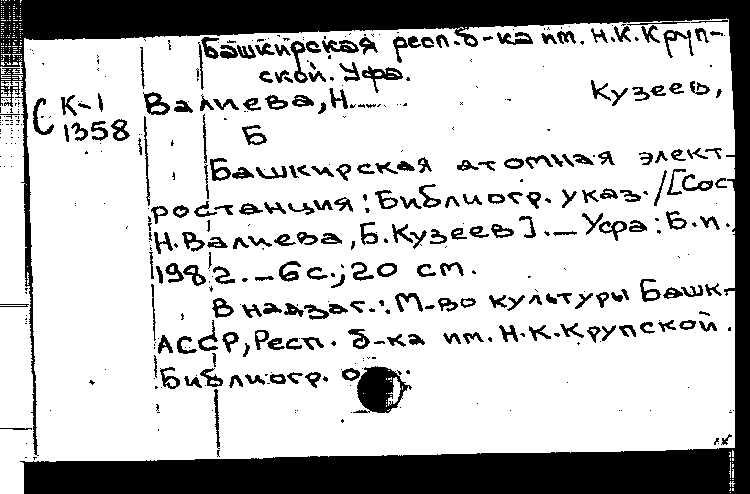 Башкирская респ. б-ка им. Н.К.Круп-
ской. Уфа.
С К-1
1358
Валиева, Н. Кузеев,
Б
Башкирская атомная элект-
ростанция: Библиогр. указ. / [Сост
Н.Валиева, Б.Кузеев]. — Уфа: Б.и.,
1982. — 6 с.; 20 см.
В надзаг.: М-во культуры Башк.
АССР, Респ. б-ка им. Н.К.Крупской.
Библиогр.